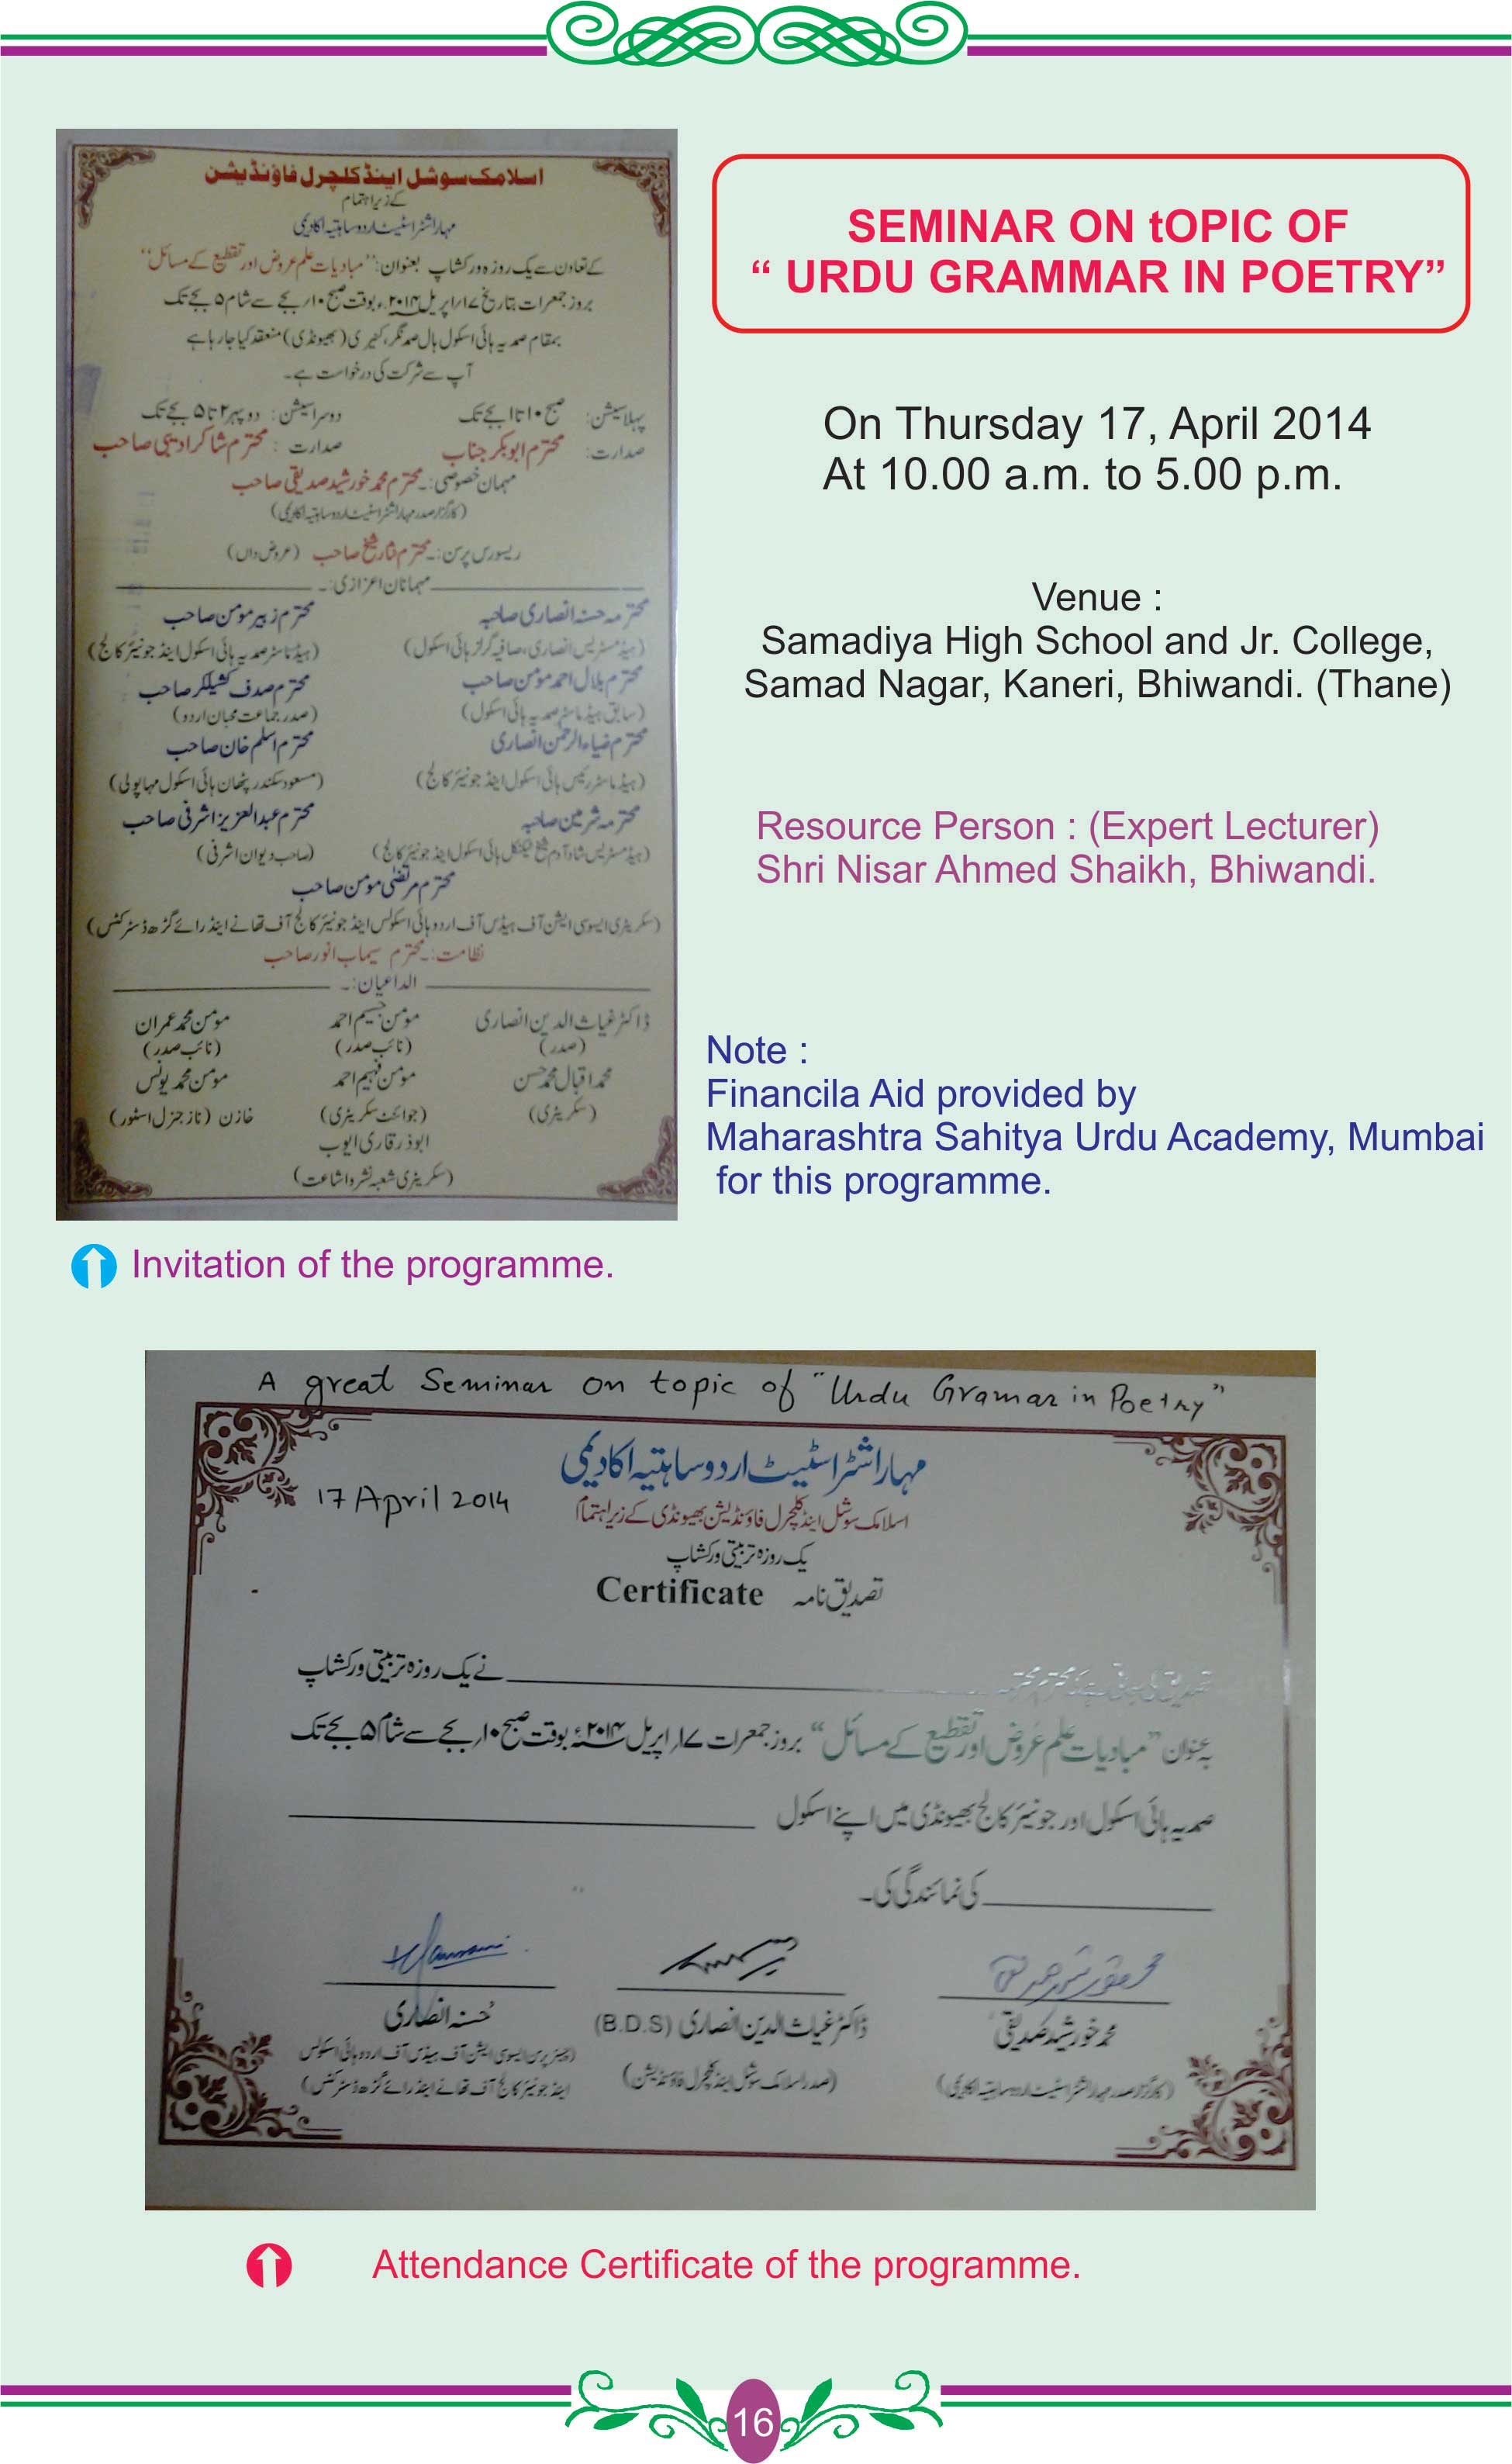 اسلامک سوشل اینڈ کلچرل فاؤنڈیشن
کے زیر اہتمام
مہاراشٹر اسٹیٹ اردو ساہتیہ اکادیمی
کے تعاون سے یک روزہ ورکشاپ بعنوان: "مبادیات علم عروض اور تقطیع کے مسائل"
بروز جمعرات بتاریخ ۱۷/اپریل ۲۰۱۴ء بوقت صبح ۱۰/بجے سے شام ۵ بجے تک
بمقام صمدیہ ہائی اسکول ہال صمد نگر، کنیری (بھیونڈی) منعقد کیا جا رہا ہے
آپ سے شرکت کی درخواست ہے۔
پہلا سیشن: صبح ۱۰ تا ۱ بجے تک دوسرا سیشن: دوپہر ۲ تا ۵ بجے تک
صدارت: محترم ابوبکر جناب صدارت: محترم شاکر ادیبی صاحب
مہمان خصوصی:۔ محترم محمد خورشید صدیقی صاحب
(کارگزار صدر مہاراشٹر اسٹیٹ اردو ساہتیہ اکادیمی)
ریسورس پرسن:۔ محترم نثار شیخ صاحب (عروض داں)
مہمانان اعزازی:۔
محترمہ حسنہ انصاری صاحبہ محترم زبیر مومن صاحب
(ہیڈ مسٹریس انصاری صافیہ گرلز ہائی اسکول) (ہیڈ ماسٹر صمدیہ ہائی اسکول اینڈ جونیئر کالج)
محترم بلال احمد مومن صاحب محترم صدف کشیلکر صاحب
(سابق ہیڈ ماسٹر صمدیہ ہائی اسکول) (صدر جماعت محبان اردو)
محترم ضیاء الرحمٰن انصاری محترم اسلم خان صاحب
(ہیڈ ماسٹر رئیس ہائی اسکول اینڈ جونیئر کالج) (مسعود سکندر پٹھان ہائی اسکول مہاپولی)
محترمہ شرمین صاحبہ محترم عبدالعزیز اشرفی صاحب
(ہیڈ مسٹریس شاد آدم شیخ ٹیکنیکل ہائی اسکول اینڈ جونیئر کالج) (صاحب دیوان اشرفی)
محترم مرتضیٰ مومن صاحب
(سکریٹری ایسوسی ایشن آف ہیڈس آف اردو ہائی اسکولس اینڈ جونیئر کالج آف تھانے اینڈ رائے گڑھ ڈسٹرکٹس)
نظامت:۔ محترم سیماب انور صاحب
الداعیان:۔
ڈاکٹر غیاث الدین انصاری مومن جسیم احمد مومن محمد عمران
(صدر) (نائب صدر) (نائب صدر)
محمد اقبال محمد حسن مومن فہیم احمد مومن محمد یونس
(سکریٹری) (جوائنٹ سکریٹری) خازن (ناز جنرل اسٹور)
ابوذر قاری ایوب
(سکریٹری شعبہ نشر و اشاعت)
Invitation of the programme.
SEMINAR ON tOPIC OF
“ URDU GRAMMAR IN POETRY”
On Thursday 17, April 2014
At 10.00 a.m. to 5.00 p.m.
Venue :
Samadiya High School and Jr. College,
Samad Nagar, Kaneri, Bhiwandi. (Thane)
Resource Person : (Expert Lecturer)
Shri Nisar Ahmed Shaikh, Bhiwandi.
Note :
Financila Aid provided by
Maharashtra Sahitya Urdu Academy, Mumbai
for this programme.
A great Seminar on topic of "Urdu Gramar in Poetry"
17 April 2014
مہاراشٹر اسٹیٹ اردو ساہتیہ اکادیمی
اسلامک سوشل اینڈ کلچرل فاؤنڈیشن بھیونڈی کے زیر اہتمام
یک روزہ تربیتی ورکشاپ
تصدیق نامہ Certificate
تصدیق کی جاتی ہے کہ محترم/محترمہ نے یک روزہ تربیتی ورکشاپ
بہ عنوان "مبادیات علم عروض اور تقطیع کے مسائل" بروز جمعرات ۱۷/اپریل ۲۰۱۴ء بوقت صبح ۱۰/بجے سے شام ۵ بجے تک
صمدیہ ہائی اسکول اور جونیئر کالج بھیونڈی میں اپنے اسکول
کی نمائندگی کی۔
محمد خورشید صدیقی
محمد خورشید صدیقی ڈاکٹر غیاث الدین انصاری (B.D.S) حُسنہ انصاری
(کارگزار صدر مہاراشٹر اسٹیٹ اردو ساہتیہ اکادیمی) (صدر اسلامک سوشل اینڈ کلچرل فاؤنڈیشن) (چیئر پرسن ایسوسی ایشن آف ہیڈس آف اردو ہائی اسکولس
اینڈ جونیئر کالج آف تھانے اینڈ رائے گڑھ ڈسٹرکٹس)
Attendance Certificate of the programme.
16